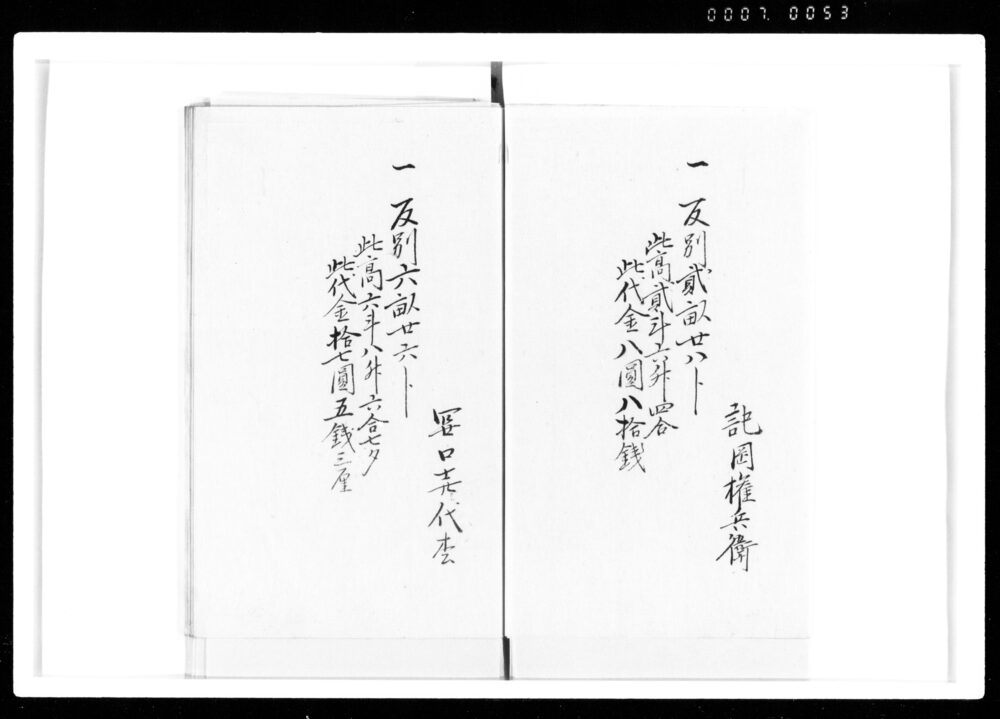 0007. 0053
岡権兵衛
一 反別貳畝廿八ト
此高貳斗六升四合
此代金八圓八拾銭
口㐂代
一 反別六畝廿六ト
此高六斗八升六合七夕
此代金拾七圓五銭三厘